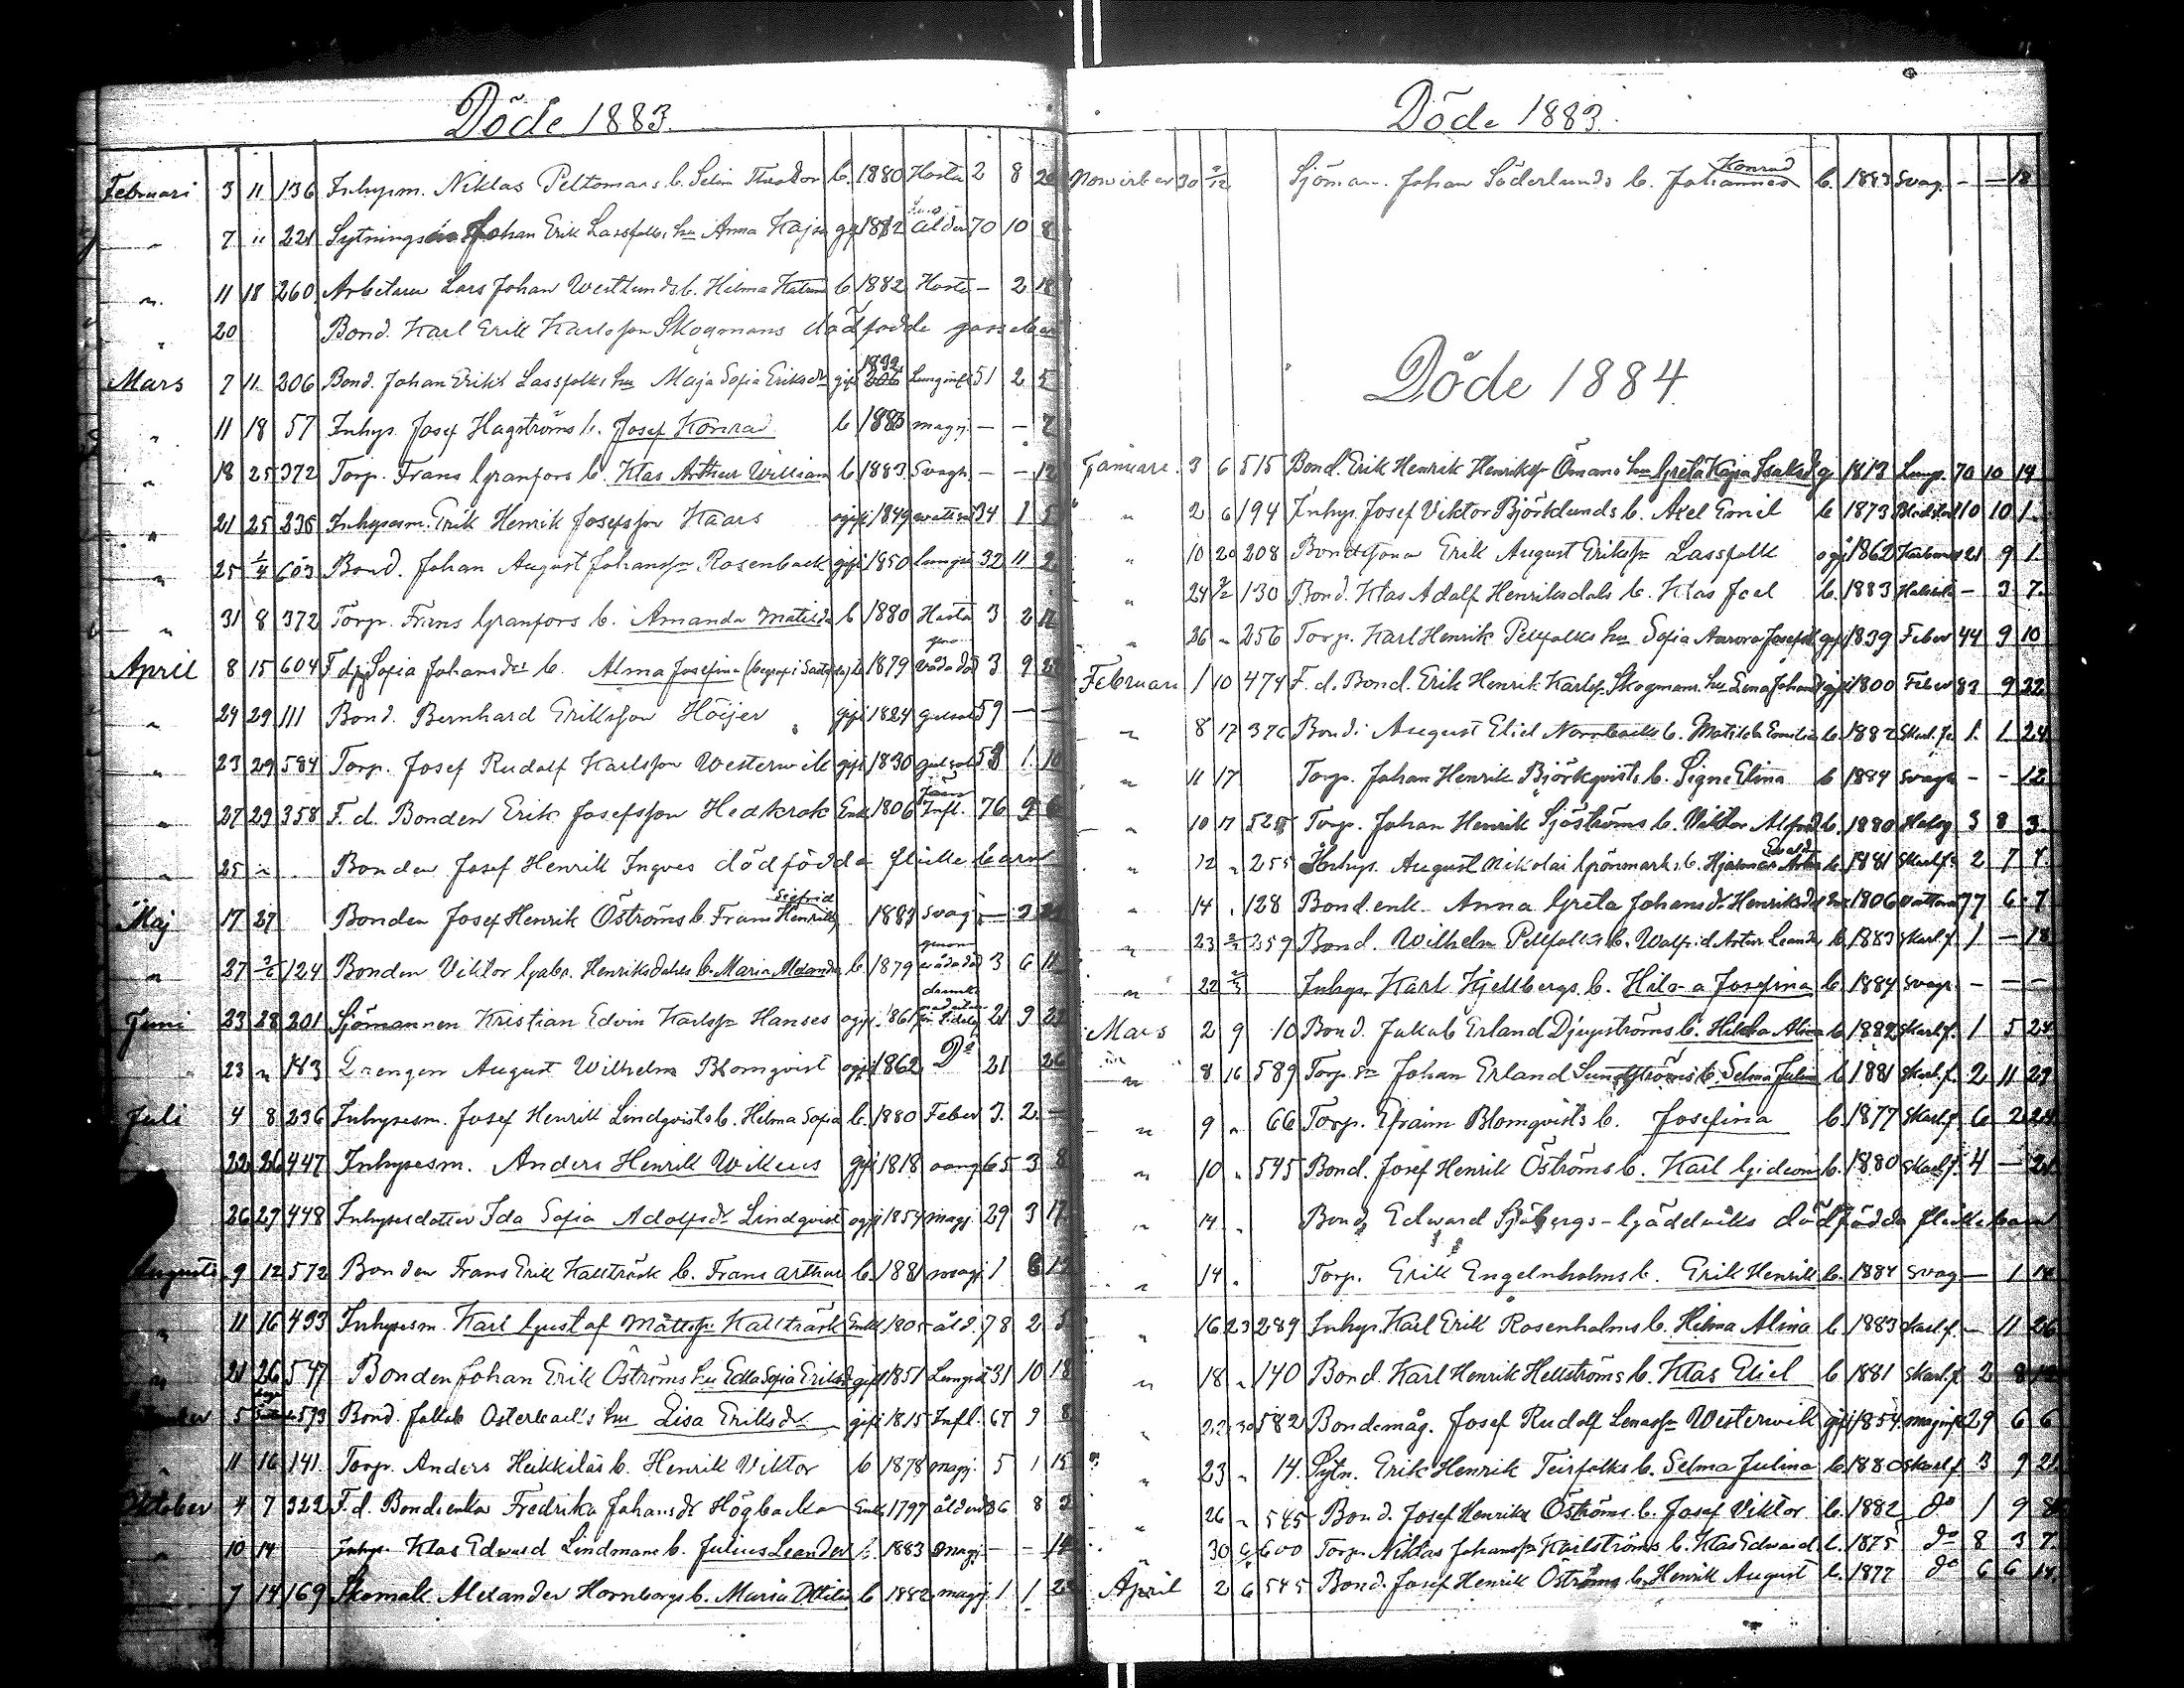 Döde 1883.
Februari 3 11 136 Inhysm. Niklas Peltomaas b. Selim Theodor b. 1880 Hosta 2 8
" 7 " 221 Sytnings Johan Erik Lassfolks hu Anna Kajsa gif 1812 ålder 70 10 8
" 11 18 260 Arbetaren Lars Johan Westlunds b. Hilma b 1882 Hosta - 2 18
" 20 Bond. Karl Erik Karlsson Skogmans dödfödde gossebarn
Mars 7 11 206 Bond. Johan Eriks Lassfolks hu Maja Sofia Eriksdr gift 1832 Lunginfl 51 2 5
" 11 18 57 Inhys. Josef Hagströms b. Josef Konrad b 1883 magpl - - 7
" 18 25 372 Torp. Frans Granfors b. Klas Arthur William b 1883 Svagh - - 12
" 21 25 238 Inhysesm. Erik Henrik Josefsson Kaars ogift 1849 34 1 5
" 25 1/4 603 Bond. Johan August Johanssn Rosenback gift 1850 Lungs 32 11 2
" 31 8 372 Torp. Frans Granfors b. Amanda Matilda b 1880 Hosta 3 2 12
April 8 15 604 F.d. Sofia Johansdrs b. Alma Josefina b 1879 genom våda död 3 9
" 24 29 111 Bond. Bernhard Eriksson Höijer gift 1824 gulsot 59 - -
" 23 29 584 Torp. Josef Rudolf Karlsson Westerwik gift 1830 gulsot 53 1 10
" 27 29 358 F. d. Bonden Erik Josefsson Hedkrok Enkl 1806 Infl. 76 9 6
" 25 " Bonden Josef Henrik Ingves dödfödda flickebarn
Maj 17 27 Bonden Josef Henrik Öströms b. Frans Henrik Sigfrid 1883 svag - 2
" 27 3/6 124 Bonden Viktor Gabr. Henriksdahls b. Maria Alexandra b 1879 genom våda död 3 6 11
Juni 23 28 201 Sjömannen Kristian Edvin Karlssn Hanses ogift 1861 21 9
" 23 " 183 Drengen August Wilhelm Blomqvist ogift 1862 Do 21 26
Juli 4 8 236 Inhysesm. Josef Henrik Lindqvists b. Hilma Sofia b. 1880 Feber 3 2 -
22 26 447 Inhysesm. Anders Henrik Wikus gift 1818 65 3 8
26 29 448 Inhysesdotter Ida Sofia Adolfsdr Lindqvist ogift 1854 magpl 29 3 17
Augusti 9 12 572 Bonden Frans Erik Kallträsk b. Frans Arthur b. 1881 magpl 1 6 12
" 11 16 493 Inhysesm. Karl Gustaf Mattssn Kallträsk Enkl 1805 åld. 78 2 5
" 21 26 547 Bonden Johan Erik Öströms hu Edla Sofia Eriksdr gift 1851 Lungsot 31 10 18
5 593 Bond. Jakob Österbacks hu Lisa Eriksdr gift 1815 Infl. 67 9 8
" 11 16 141 Torp. Anders Heikkiläs b. Henrik Viktor b 1878 magpl 5 1 15
Oktober 4 7 322 F.d. Bondenka Fredrika Johansdr Högbacka Enka 1797 ålderd 86 8 2
" 10 14 Inhys. Klas Edward Lindmans b. Julius Leander b. 1883 magpl - - 14
7 14 169 Skomak. Alexander Hornborgs b. Maria Ottilia b 1882 magpl 1 1
Döde 1883.
November 30 2/12 Sjöman. Johan Söderlunds b. Johannes Konrad b. 1883 Svag. - - 18
Döde 1884
Januari. 3 6 515 Bond. Erik Henrik Henrikssn Ömans hu Greta Kajsa Isaksdr g 1813 Lung. 70 10 14
" 2 6 194 Inhys. Josef Viktor Björklunds b. Axel Emil b 1873 10 10 1.
" 10 20 208 Bondesona Erik August Erikssn Lassfolk ogift 1862 21 9 1.
" 24 3/2 130 Bond. Klas Adolf Henriksdals b. Klas Joel b. 1883 - 3 7.
" 26 " 256 Torp. Karl Henrik Pellfolks hu Sofia Aurora Josefsdr gift 1839 Feber 44 9 10
Februari 1 10 474 F. d. Bond. Erik Henrik Karlssn Skogmans hu Lena Johansdr gift 1800 Feber 83 9 22
" 8 17 376 Bond. August Eliel Norrbacks b. Matilda Emilia b. 1882 Skarl. fe 1. 1. 24
" 11 17 Torp. Johan Henrik Björkqvists b. Signe Elina b 1884 svagh - - 12
" 10 17 525 Torp. Johan Henrik Sjöströms b. Viktor Alfred b. 1880 3 8 3
" 12 " 255 Inhys. August Nikolai Grönmarks b. Hjalmar b. 1881 Skarl.f. 2 7 7.
" 14 " 128 Bond.enk. Anna Greta Johansdr Henriksdal 1806 vattens 77 6 7
" 23 359 Bond. Wilhelm Pellfolks b. Walfrid Artur Leander b 1883 Skarl.f. 1 - 18
" 22 2/3 Inhys. Karl Kjellbergs b. Hilma Josefina b. 1884 svagh - - -
Mars 2 9 10 Bond. Jakob Erland Djupströms b. Hilda Alina b 1882 Skarl.f. 1 5 24
" 8 16 589 Torp.sn Johan Erland Sundströms b. Selma Julina b 1881 Skarl.f. 2 11 23
" 9 " 66 Torp. Efraim Blomqvists b. Josefina b. 1877 Skarl.f 6 2 24
" 10 " 545 Bond. Josef Henrik Öströms b. Karl Gideon b. 1880 Skarl.f. 4 - 21
" 14 " Bond. Edward Sjöbergs-Gäddviks dödfödda flickebarn
" 14 " Torp. Erik Engelnholms b. Erik Henrik b. 1884 svag - 1 14
" 16 23 289 Inhys. Karl Erik Rosenholms b. Hilma Alina b. 1883 Skarl.f. - 11 26
" 18 " 140 Bond. Karl Henrik Hellströms b. Klas Eliel b 1881 Skarl.f. 2 8
" 22 30 582 Bondemåg. Josef Rudolf Westerwik gift 1854 maginfl 29 6 6
" 23 " 14. Sytn. Erik Henrik Teirfolks b. Selma Julina b. 1880 Skarl.f 3 9 21
" 26 " 545 Bond. Josef Henriks Öströms b. Josef Viktor b. 1882 do 1 9 8
30 6 600 Torp. Niklas Johanssn Karlströms b. Klas Edward b. 1875 do 8 3 7
April 2 6 545 Bond. Josef Henrik Öströms b. Henrik August b. 1877 do 6 6 14